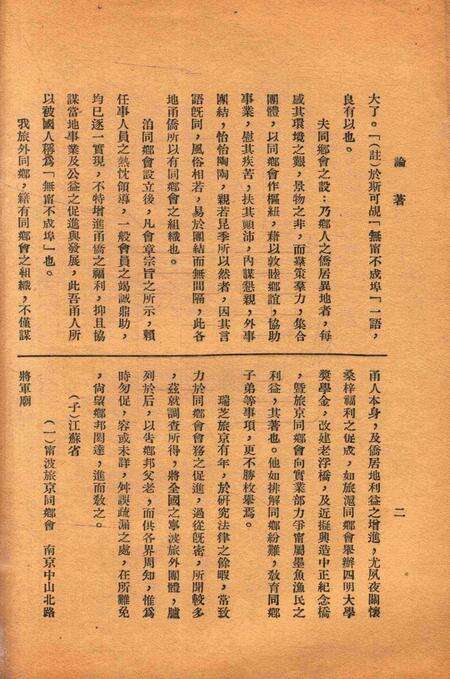 論著
二
大了。」(註)於斯可覘「無甯不成埠「一語,
良有以也。
夫同鄉會之設:乃鄉人之僑居異地者,每
感其環境之艱,景物之非,而羣策羣力,集合
團體,以同鄉會作樞紐,藉以敦睦鄉誼,協助
事業,慰其疾苦,扶其顛沛,內謀懇親,外事
團結,怡怡陶陶,親若昆季所以然者,因其言
語旣同,風俗相若,易於團結而無間隔,此各
地甬僑所以有同鄉會之組織也。
洎同鄉會設立後,凡會章宗旨之所示,賴
任事人員之熱忱領導,一般會員之竭誠鼎助,
均已逐一實現,不特增進甬僑之福利,抑且協
謀當地事業及公益之促進與發展,此吾甬人所
以被國人稱爲「無甯不成埠」也。
我旅外同鄉,藉有同鄉會之組織,不僅謀
甬人本身,及僑居地利益之增進,尤夙夜關懷
桑梓福利之促成,如旅滬同鄉會舉辦四明大學
獎學金,改建老浮橋,及近擬興造中正紀念橋
,曁旅京同鄉會向實業部力爭甯屬墨魚漁民之
利益,其著也。他如排解同鄉紛難,敎育同鄉
子弟等事項,更不勝枚舉焉。
瑞芝旅京有年,於硏究法律之餘暇,當致
力於同鄉會會務之促進,過從旣密,所聞較多
,茲就調查所得,將全國之甯波旅外團體,臚
列於后,以告鄉邦父老,而供各界周知,惟爲
時匆促,容或未詳,舛誤疏漏之處,在所難免
,尙望鄉邦閎達,進而敎之。
(子)江蘇省
(一)甯波旅京同鄉會 南京中山北路
將軍廟